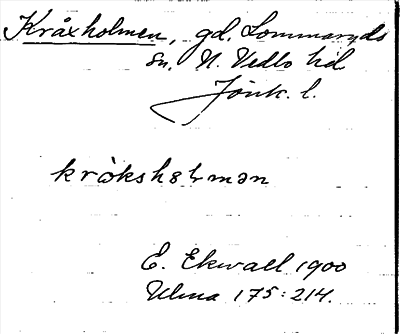 Kråxholmen, gd. Lommaryds
sn. N. Vedbo hd
Jönk. l.
kråkshɵlmən
E. Ekwall 1900
Ulma 175:214.